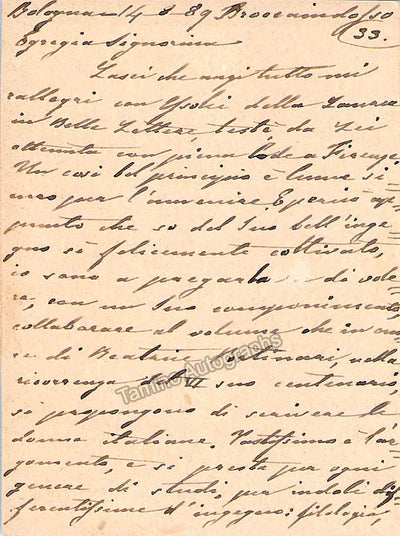 Bologna 14-8-89 Broccaindosso
33.
Egregia Signorina
Lasci che anzi tutto mi
rallegri con della Laurea
in Belle Lettere, testè da Lei
ottenuta con piena lode a Firenze.
Un così bel principio è lume si=
curo per l'avvenire. E perciò ap=
punto che so del Suo bell'inge=
gno sì felicemente coltivato,
io sono a pregarla di vole=
re, con un Suo componimento
collaborare al volume che in ono=
re di Beatrice Portinari, nella
ricorrenza del VI suo centenario,
si propongono di scrivere le
donne italiane. Vastissimo è l'ar=
gomento, e si presta per ogni
genere di studi, per indoli dif=
ferentissime d'ingegno: filologia,
Tamino Autographs